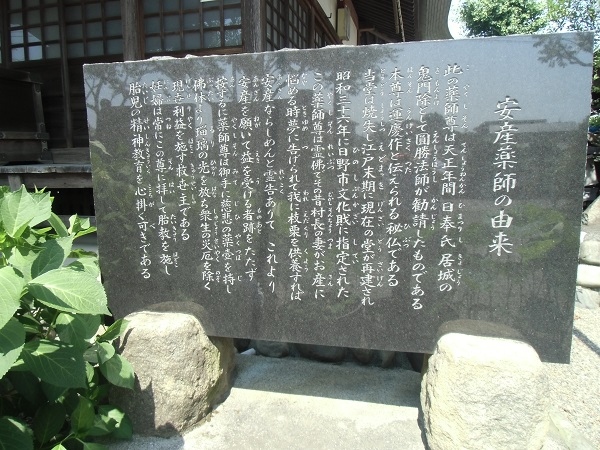 安産薬師の由来
此の薬師尊は天正年間 日奉氏 居城の
鬼門除として圓勝法師が勧請したものである
本尊は運慶作と伝えられる秘仏である
当堂は焼失し江戸末期に現在の堂が再建され
昭和三十六年に日野市文化財に指定された
この薬師尊は霊佛でその昔村長の妻がお産に
悩める時夢に告げられて我に枝栗を供養すれば
安産ならしめんと霊告ありて これより
安産を願いて益を受ける者跡をたたず
按ずるに薬師尊は御手に慈悲の薬壺を持し
佛体より瑠璃の光を放ち衆生の災厄を除く
現世利益を施す救世主である
妊婦は常にこの尊に拝して胎教を施し
胎児の精神教育を心掛く可きである